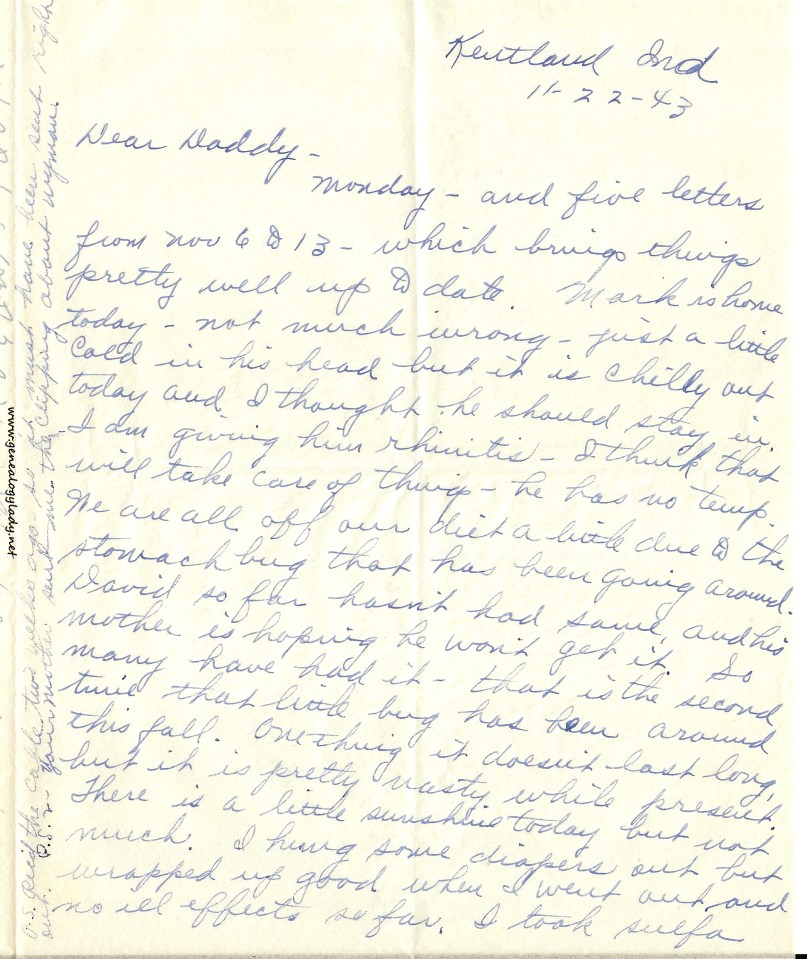 Kentland Ind
11-22-43
Dear Daddy-
Monday - and five letters
from Nov 6 to 13 - which brings things
pretty well up to date. Mark is home
today - not much wrong - just a little
cold in his head but it is chilly out
today and I thought he should stay in.
I am giving him rhinitis - I think that
will take care of things - he has no temp.
We are all off our diet a little due to the
stomach bug that has been going around.
David so far hasn't had same, and his
mother is hoping he won't get it. So
many have had it - that is the second
time that little bug has been around
this fall. One thing it doesn't last long,
but it is pretty nasty while present.
There is a little sunshine today but not
much. I hung some diapers out but
wrapped up good when I went out and
no ill effects so far. I took sulfa
P.S. the cable two weeks ago so it must have been sent right
out. P.S. 2 - Your mother sent me the clipping about Wyman.
www.genealogylady.net